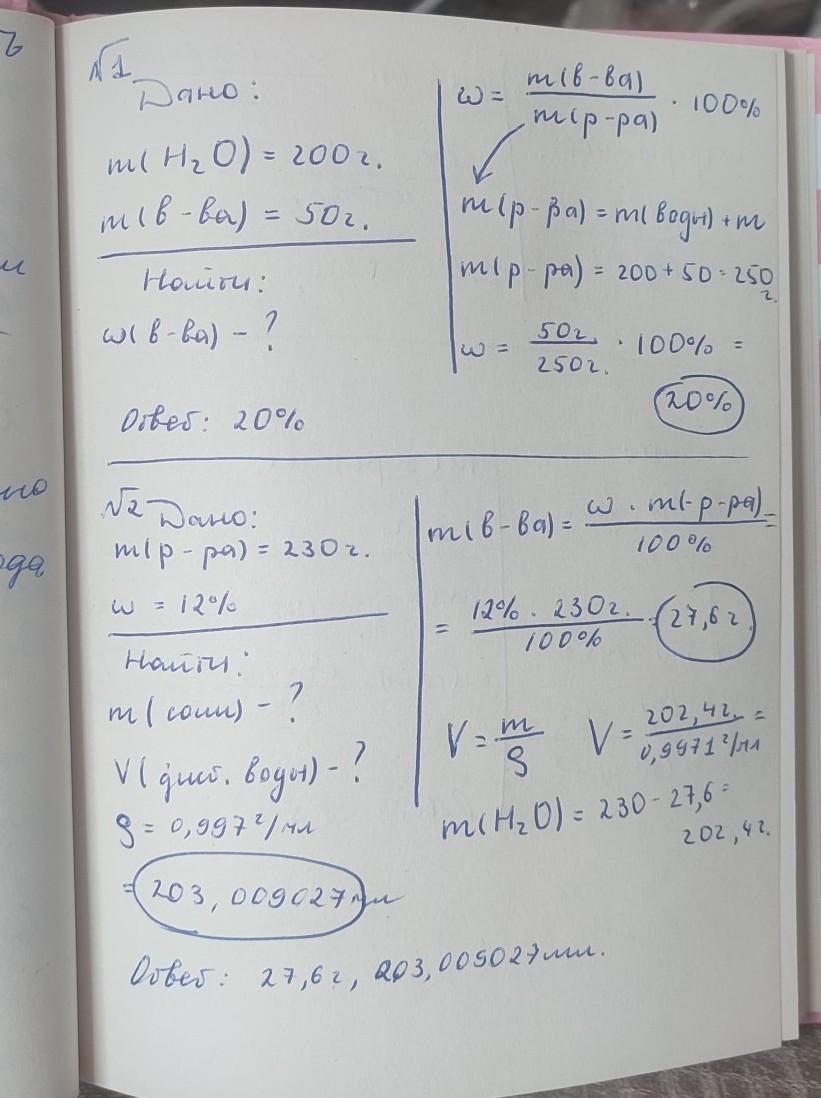 √1
Дано:
m(H₂O) = 200г.
m(в-ва) = 50г.
Найти:
ω(в-ва) - ?
ω = m(в-ва) / m(р-ра) · 100%
m(р-ра) = m(воды) + m
m(р-ра) = 200 + 50 = 250 г.
ω = 50г. / 250г. · 100% =
20%
Ответ: 20%
√2 Дано:
m(р-ра) = 230г.
ω = 12%
Найти:
m(соли) - ?
V(дист. воды) - ?
ρ = 0,997 г/мл
m(в-ва) = ω · m(р-ра) / 100% =
= 12% · 230г. / 100% = 27,6г.
V = m / ρ V = 202,4г. / 0,9971 г/мл =
m(H₂O) = 230 - 27,6 =
202,4г.
= 203,009027мл
Ответ: 27,6г, 203,009027мл.
но
ода